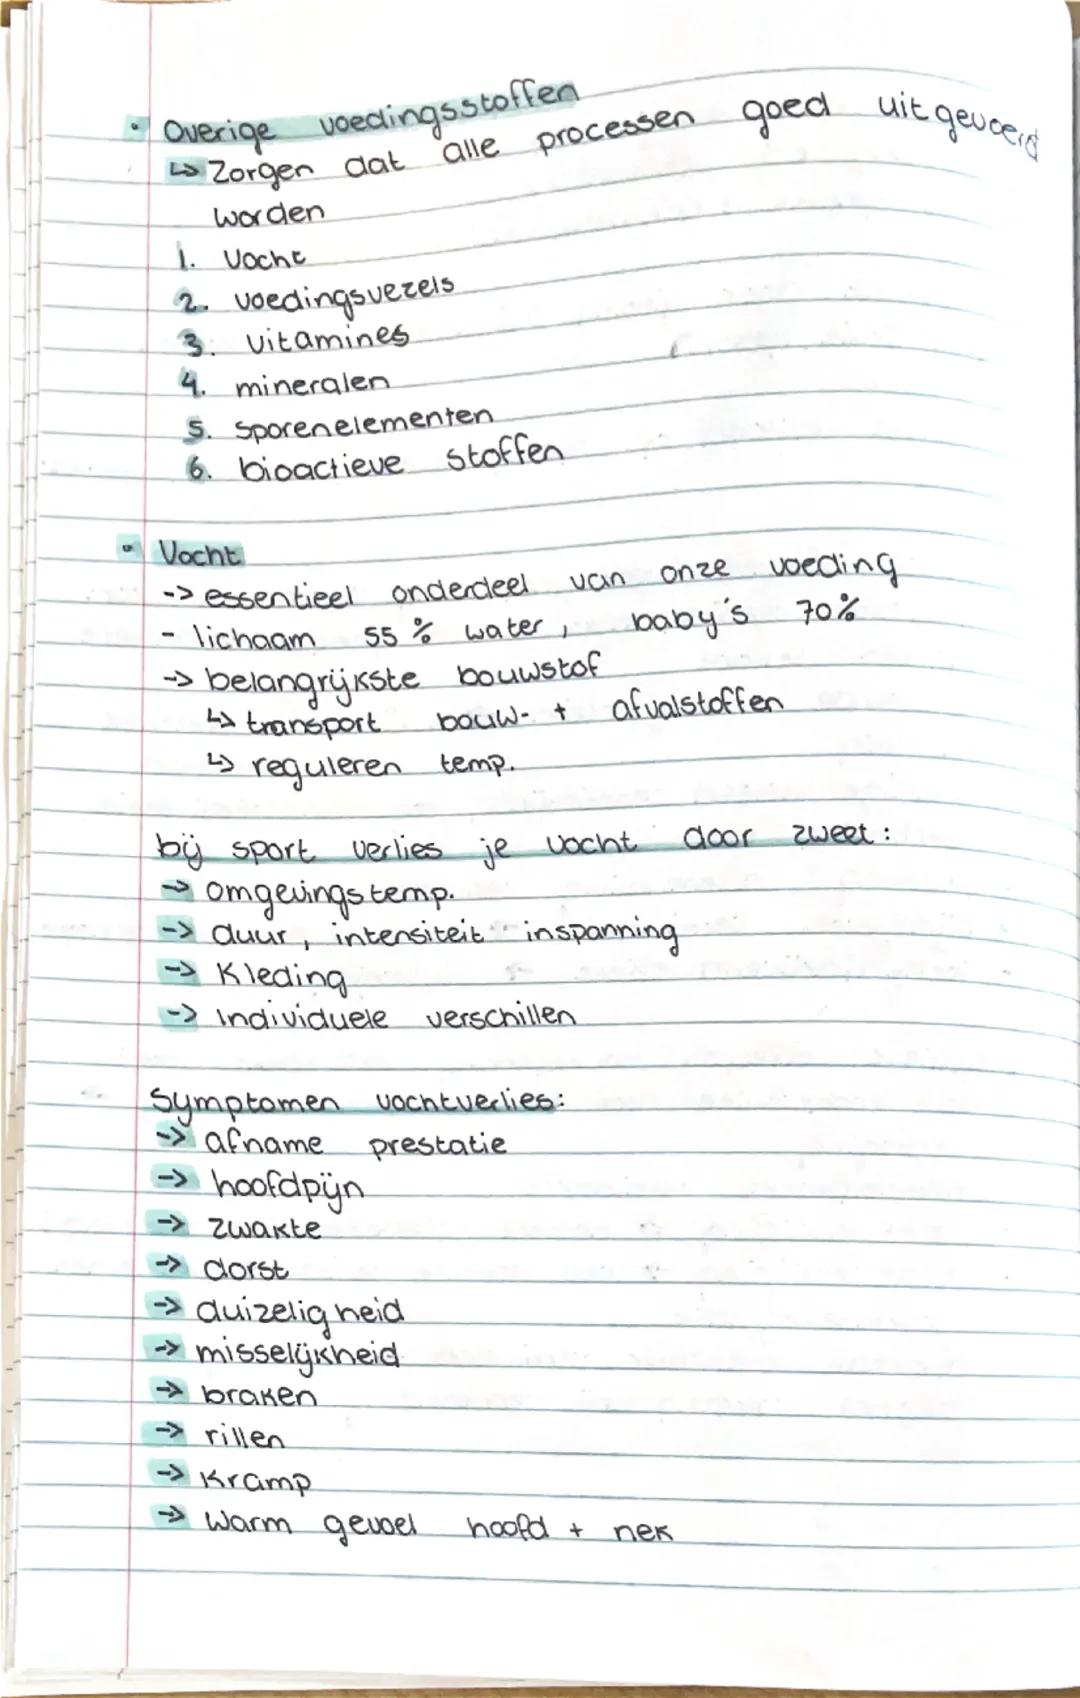 • Overige voedingsstoffen
↳ Zorgen dat alle processen goed uitgevoerd
worden
1. Vocht
2. voedingsvezels
3. vitamines
4. mineralen
5. sporenelementen
6. bioactieve stoffen
• Vocht
-> essentieel onderdeel van onze voeding
- lichaam 55 % water, baby's 70%
-> belangrijkste bouwstof
↳ transport bouw- + afvalstoffen
↳ reguleren temp.
bij sport verlies je vocht door zweet:
-> omgevingstemp.
-> duur, intensiteit inspanning
-> Kleding
-> Individuele verschillen
Symptomen vochtverlies:
-> afname prestatie
-> hoofdpijn
-> zwakte
-> dorst
-> duizeligheid
-> misselijkheid
-> braken
-> rillen
-> Kramp
-> Warm gevoel hoofd + nek